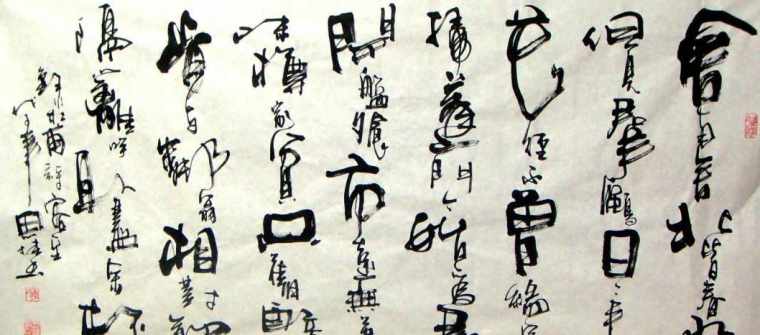 舍南舍北皆春
但見羣鷗日々
花徑不曾緣客
掃蓬門今始為
開盤飧市遠無兼
味樽家貧只舊醅
肯與鄰翁相對
隔籬呼取盡餘杯
錄杜甫詩客至